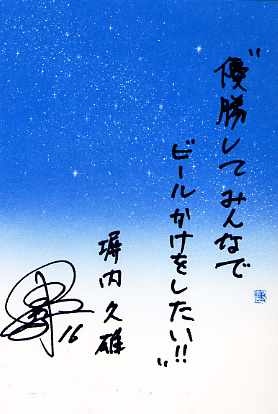 "優勝してみんなで
ビールかけをしたい!!"
堀内久雄
16